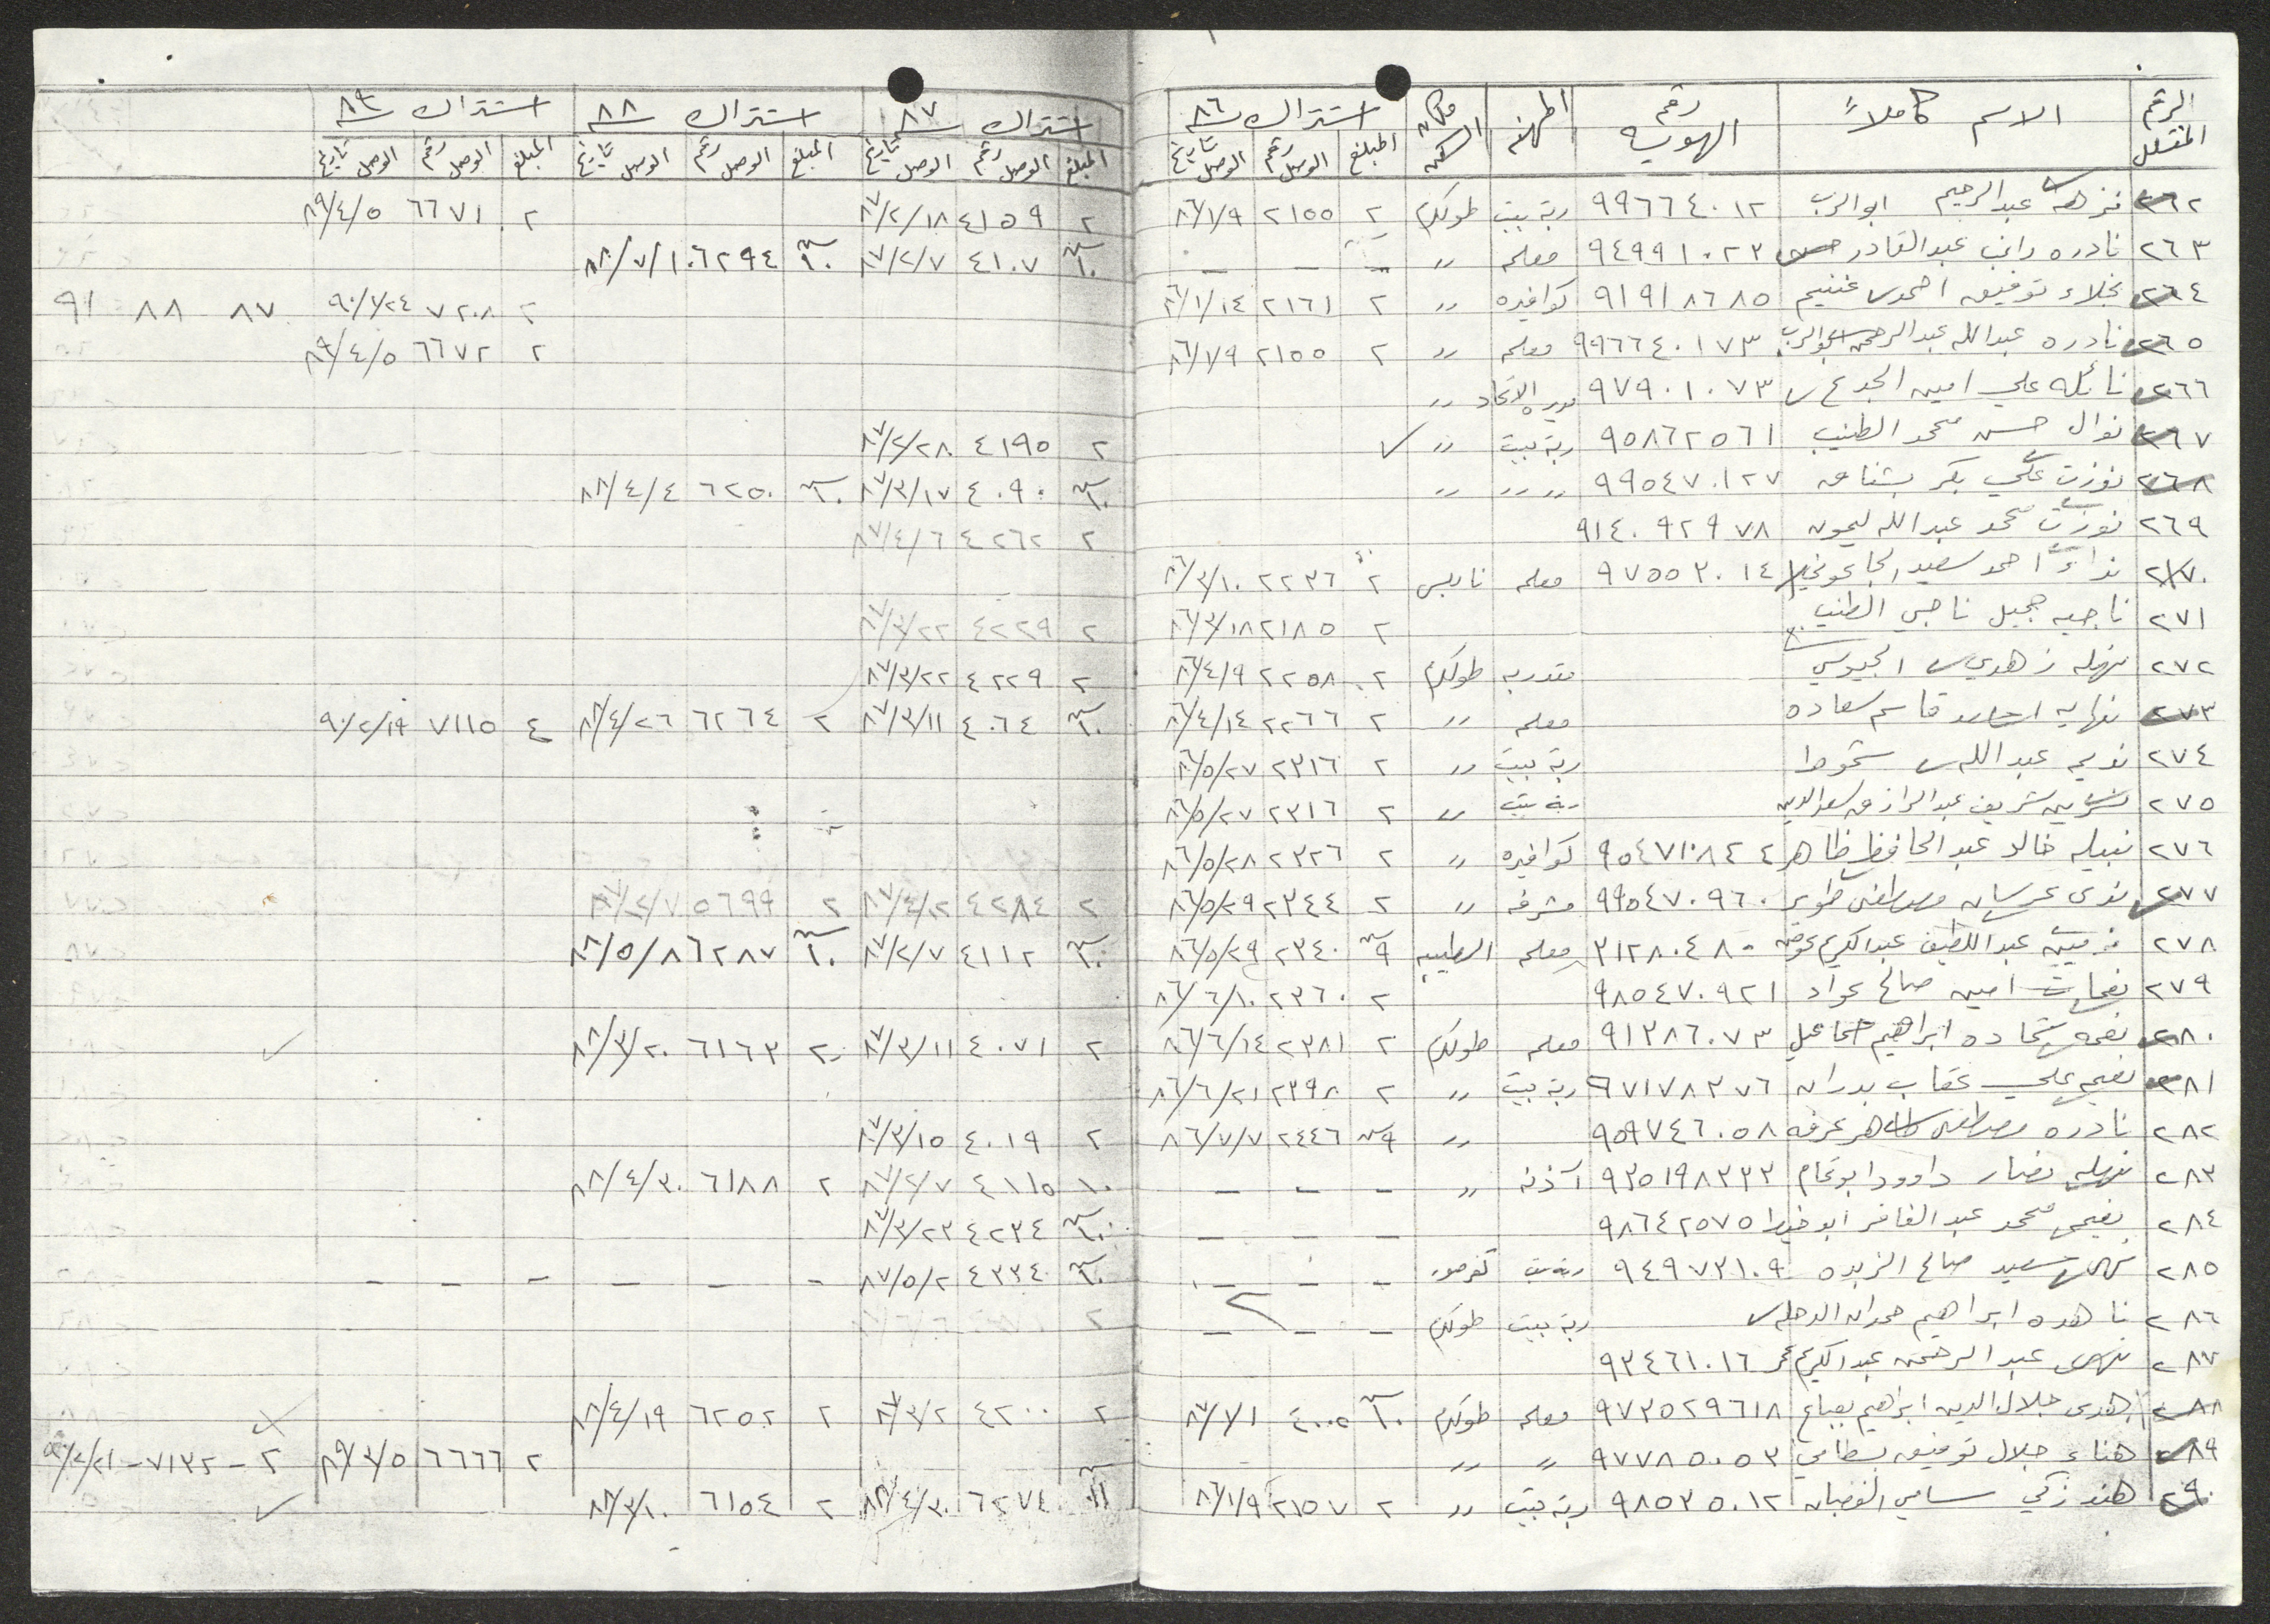 الرقم المتسلسل الاسم كاملاً رقم الهوية المهنة مكان السكن اشتراك ٨٦ اشتراك ٨٧ اشتراك ٨٨ اشتراك ٨٩
المبلغ رقم الوصل تاريخ الوصل المبلغ رقم الوصل تاريخ الوصل المبلغ رقم الوصل تاريخ الوصل المبلغ رقم الوصل تاريخ الوصل
٢٦٢ نزهه عبدالرحيم ابوالرب ٩٩٦٦٤٠١٢ ربة بيت طولكرم ٢ ٢١٥٥ ٨٦/١/٩ ٢ ٤١٥٩ ٨٧/٢/١٨ ٢ ٦٦٧١ ٨٩/٤/٥
٢٦٣ نادره راغب عبدالقادر ٩٤٩٩١٠٢٣ معلمه ״ - - - ٤١٠٧ ٨٧/٢/٧ ٦٢٩٤ ٨٨/٧/١٠
٢٦٤ نجلاء توفيق احمد غنيم ٩١٩١٨٦٨٥ كوافيره ״ ٢ ٢١٦١ ٨٦/١/١٤ ٢ ٧٢٠٨ ٩٠/٧/٢٤ ٨٧ ٨٨ ٩١
٢٦٥ نادره عبدالله عبدالرحمن ابوالرب ٩٩٦٦٤٠١٧٣ معلمه ״ ٢ ٢١٥٥ ٨٦/١/٩ ٢ ٦٦٧٢ ٨٩/٤/٥
٢٦٦ نائله علي امين الجدع ٩٧٩٠١٠٧٣ مديرة الاتحاد ״
٢٦٧ نوال حسن محمد الطنيب ٩٥٨٦٢٥٦١ ربة بيت ״ ✓ ٢ ٤١٩٥ ٨٧/٢/٢٨
٢٦٨ نوزت علي بكر بشناق ٩٩٥٤٧٠١٢٧ ״ ״ ״ ٤٠٩٠ ٨٧/٣/١٧ ٦٢٥٠ ٨٨/٤/٤
٢٦٩ نوزت محمد عبدالله ليمون ٩١٤٠٩٢٩٧٨ ٢ ٤٢٦٢ ٨٧/٤/٦
٢٧٠ نداء احمد سعيد الجاعوني ٩٧٥٥٢٠١٤ معلمه نابلس ٢ ٢٢٣٦ ٨٦/٣/١٠
٢٧١ ناجيه جميل ناجي الطنيب ٢ ٢١٨٥ ٨٦/٣/١٨ ٢ ٤٢٢٩ ٨٧/٣/٢٢
٢٧٢ نهله زهدي الجيوسي متدربه طولكرم ٢ ٢٢٥٨ ٨٦/٤/٩ ٢ ٤٢٢٩ ٨٧/٣/٢٢
٢٧٣ نهايه قاسم سعاده معلمه ״ ٢ ٢٢٦٦ ٨٦/٤/١٤ ٤٠٦٤ ٨٧/٣/١١ ٢ ٦٢٦٤ ٨٨/٤/٢٦ ٤ ٧١١٥ ٩٠/٢/١٩
٢٧٤ نديمه عبدالله شحوط ربة بيت ״ ٢ ٢٣١٦ ٨٦/٥/٢٧
٢٧٥ نسرين شريف عبدالرازق سعدالدين ربة بيت ״ ٢ ٢٣١٦ ٨٦/٥/٢٧
٢٧٦ نبيله خالد عبدالحافظ ظاهر كوافيره ״ ٢ ٢٣٢٦ ٨٦/٥/٢٨
٢٧٧ ندى عرسان مصطفى طوير ٩٩٥٤٧٠٩٦٠ مشرفه ״ ٢ ٢٣٤٤ ٨٦/٥/٢٩ ٢ ٤٢٨٤ ٨٧/٤/٢ ٢ ٥٦٩٩ ٨٧/٢/٧
٢٧٨ عبداللطيف عبدالكريم عوض ٣١٢٨٠٤٨٠ معلمه الطيبه ٢٣٤٠ ٨٦/٥/٢٩ ٤١١٢ ٨٧/٢/٧ ٦٢٨٧ ٨٨/٥/٨
٢٧٩ نعمات امين صالح عواد ٩٨٥٤٧٠٩٢١ ٢ ٢٣٦٠ ٨٦/٦/١٠
٢٨٠ نعمه شحاده ابراهيم ٩١٣٨٦٠٧٣ معلمه طولكرم ٢ ٢٣٨١ ٨٦/٦/١٤ ٢ ٤٠٧١ ٨٧/٣/١١ ٢ ٦١٦٣ ٨٨/٣/٢٠ ✓
٢٨١ نعيمه علي عقاب بدران ٩٧١٧٨٣٧٦ ربة بيت ״ ٢ ٢٣٩٨ ٨٦/٦/٢١
٢٨٢ نادره مصطفى طاهر عرفه ٩٥٩٧٤٦٠٥٨ ״ ٢٤٤٦ ٨٦/٧/٧ ٢ ٤٠١٩ ٨٧/٣/١٥
٢٨٣ نهله نصار داوود ابو تمام ٩٣٥١٩٨٣٣٣ آذنه ״ - - - ١٠ ٤١١٥ ٨٧/٢/٧ ٢ ٦١٨٨ ٨٨/٤/٣٠
٢٨٤ نعيمه محمد عبدالغافر ابو خيط ٩٨٦٤٢٥٧٥ - - - ٤٢٣٤ ٨٧/٣/٢٣
٢٨٥ نهى سعيد صالح الزبده ٩٤٩٧٣١٠٩ ربة بيت كفرصور - - - ٤٣٣٤ ٨٧/٥/٢ - - - - - -
٢٨٦ ناهده ابراهيم حمدان الدحله ربة بيت طولكرم - - - ٢
٢٨٧ نهى عبدالرحمن عبدالكريم عمر ٩٣٤٦١٠١٦
٢٨٨ هدى جلال الدين ابراهيم بعباع ٩٧٣٥٢٩٦١٨ معلمه طولكرم ٤٠٠٢ ٨٧/١/١ ٢ ٤٢٠٠ ٨٧/٣/٢ ٢ ٦٢٥٢ ٨٨/٤/١٩
٢٨٩ هناء جلال توفيق بسطامي ٩٧٧٨٥٠٥٣ ״ ״ ٢ ٦٦٦٦ ٨٩/٣/٥ ٢ - ٧١٣٢ - ٩٠/٢/٢١
٢٩٠ هند زكي سامي الغضبان ٩٨٥٣٥٠١٢ ربة بيت ״ ٢ ٢١٥٧ ٨٦/١/٩ ٦٢٧٤ ٨٨/٤/٣٠ ٢ ٦١٥٤ ٨٨/٣/١٠ ✓